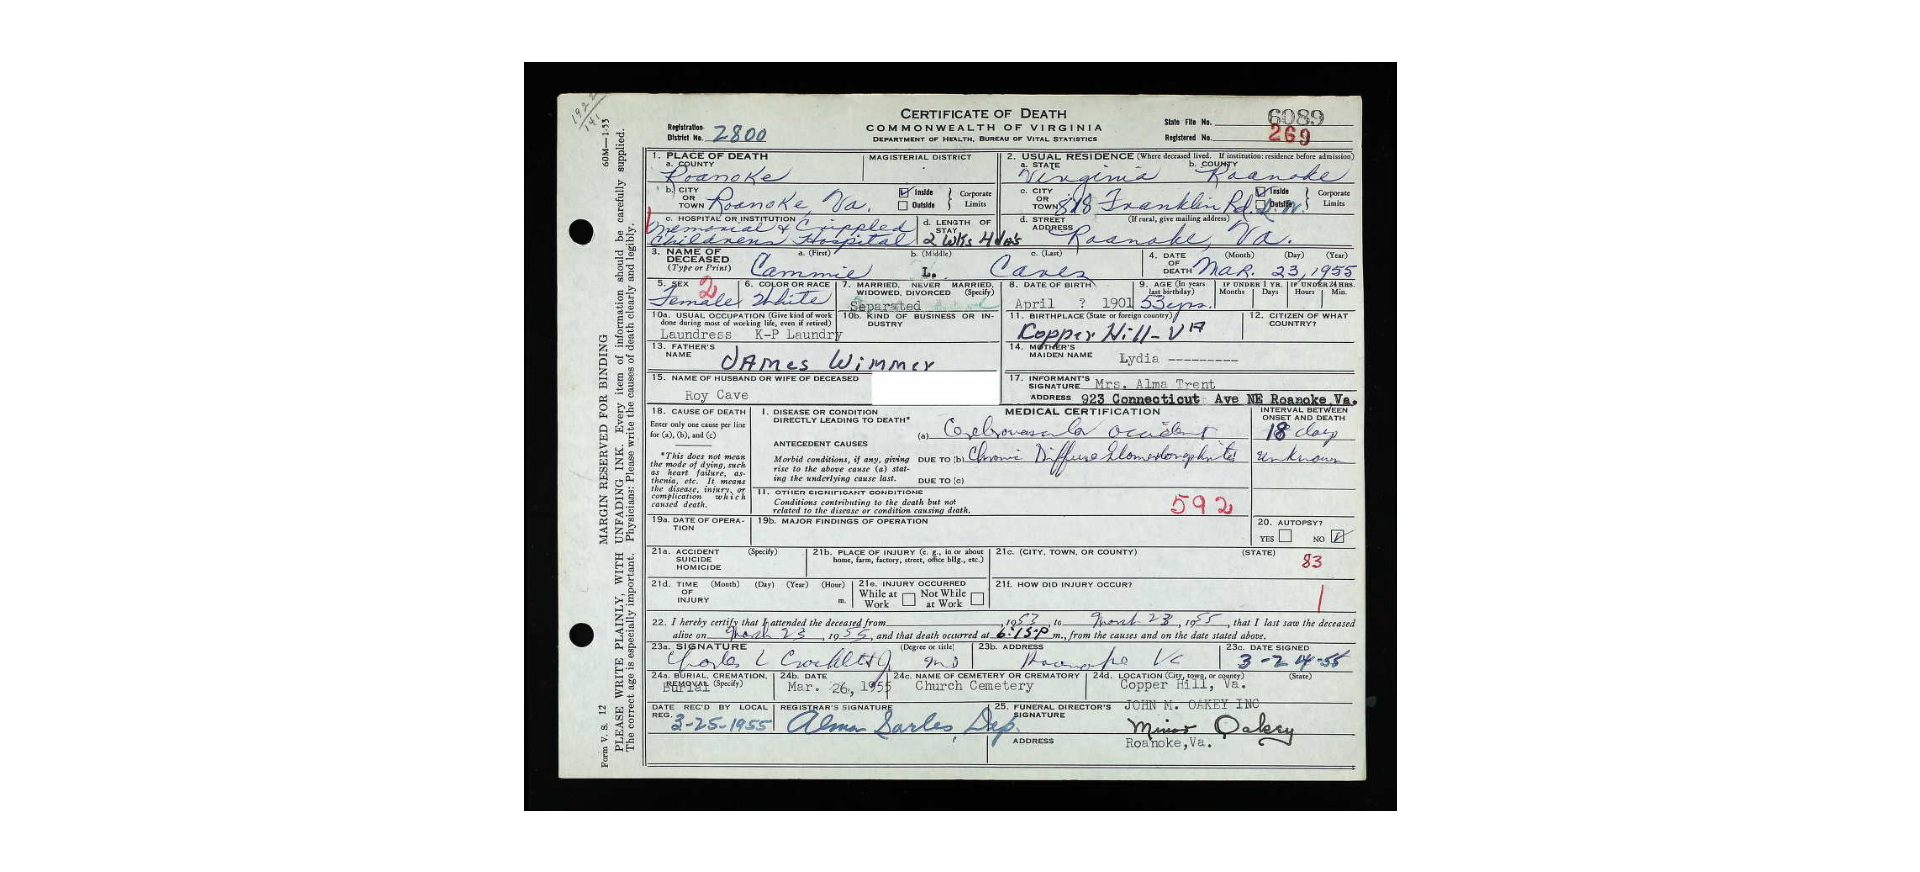 1922
141
CERTIFICATE OF DEATH
COMMONWEALTH OF VIRGINIA
DEPARTMENT OF HEALTH, BUREAU OF VITAL STATISTICS
Registration District No. 2800
State File No. 6089
Registered No. 269
1. PLACE OF DEATH
a. COUNTY Roanoke
MAGISTERIAL DISTRICT
b. CITY OR TOWN Roanoke Va.
Inside
Outside
Corporate Limits
c. HOSPITAL OR INSTITUTION Memorial & Crippled Childrens Hospital
d. LENGTH OF STAY 2 wks 4 das
2. USUAL RESIDENCE (Where deceased lived. If institution: residence before admission)
a. STATE Virginia
b. COUNTY Roanoke
c. CITY OR TOWN 818 Franklin Rd. S.W.
Inside
Outside
Corporate Limits
d. STREET ADDRESS (If rural, give mailing address) Roanoke, Va.
3. NAME OF DECEASED (Type or Print)
a. (First) Cammie
b. (Middle) L.
c. (Last) Caves
4. DATE OF DEATH (Month) (Day) (Year) Mar. 23, 1955
5. SEX Female 2
6. COLOR OR RACE White
7. MARRIED, NEVER MARRIED, WIDOWED, DIVORCED (Specify) Separated
8. DATE OF BIRTH April ? 1901
9. AGE (In years last birthday) 53 yrs.
IF UNDER 1 YR. Months Days
IF UNDER 24 HRS. Hours Min.
10a. USUAL OCCUPATION (Give kind of work done during most of working life, even if retired) Laundress K-P Laundry
10b. KIND OF BUSINESS OR INDUSTRY
11. BIRTHPLACE (State or foreign country) Copper Hill-VA
12. CITIZEN OF WHAT COUNTRY?
13. FATHER'S NAME James Wimmer
14. MOTHER'S MAIDEN NAME Lydia ---------
15. NAME OF HUSBAND OR WIFE OF DECEASED Roy Cave
17. INFORMANT'S SIGNATURE Mrs. Alma Trent
ADDRESS 923 Connecticut Ave NE Roanoke Va.
18. CAUSE OF DEATH
Enter only one cause per line for (a), (b), and (c)
*This does not mean the mode of dying, such as heart failure, asthenia, etc. It means the disease, injury, or complication which caused death.
MEDICAL CERTIFICATION
INTERVAL BETWEEN ONSET AND DEATH
I. DISEASE OR CONDITION DIRECTLY LEADING TO DEATH* (a) Cerebrovascular accident 18 days
ANTECEDENT CAUSES
Morbid conditions, if any, giving rise to the above cause (a) stating the underlying cause last.
DUE TO (b) Chronic Diffuse Glomerulonephritis unknown
DUE TO (c)
II. OTHER SIGNIFICANT CONDITIONS
Conditions contributing to the death but not related to the disease or condition causing death.
592
19a. DATE OF OPERATION
19b. MAJOR FINDINGS OF OPERATION
20. AUTOPSY?
YES NO
21a. ACCIDENT SUICIDE HOMICIDE (Specify)
21b. PLACE OF INJURY (e. g., in or about home, farm, factory, street, office bldg., etc.)
21c. (CITY, TOWN, OR COUNTY) (STATE)
83
21d. TIME OF INJURY (Month) (Day) (Year) (Hour) m.
21e. INJURY OCCURRED
While at Work Not While at Work
21f. HOW DID INJURY OCCUR?
1
22. I hereby certify that I attended the deceased from 1953, to March 23, 1955, that I last saw the deceased
alive on March 23, 1955, and that death occurred at 6:15 P m., from the causes and on the date stated above.
23a. SIGNATURE (Degree or title) Charles L Crockett Jr MD
23b. ADDRESS Roanoke Va
23c. DATE SIGNED 3-24-55
24a. BURIAL, CREMATION, REMOVAL (Specify) Burial
24b. DATE Mar. 26, 1955
24c. NAME OF CEMETERY OR CREMATORY Church Cemetery
24d. LOCATION (City, town, or county) (State) Copper Hill, Va.
DATE REC'D BY LOCAL REG. 3-25-1955
REGISTRAR'S SIGNATURE Alma Sarles, Dep.
25. FUNERAL DIRECTOR'S SIGNATURE JOHN M. OAKEY INC
Minor Oakey
ADDRESS Roanoke, Va.
Form V. S. 12
60M—1-53
MARGIN RESERVED FOR BINDING
PLEASE WRITE PLAINLY, WITH UNFADING INK. Every item of information should be carefully supplied.
The correct age is especially important. Physicians: Please write the causes of death clearly and legibly.